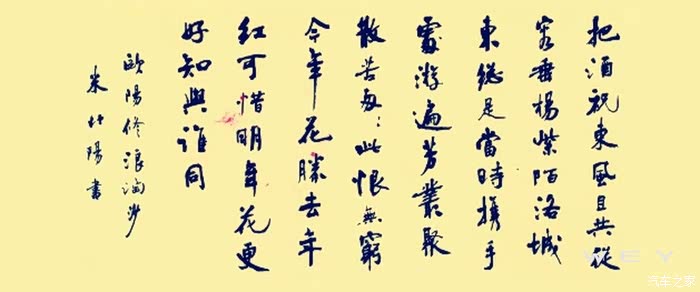 把酒祝東風且共從
容垂楊紫陌洛城
東總是當時携手
處游遍芳叢聚
散苦匆:此恨無窮
今年花勝去年
紅可惜明年花更
好知與誰同
歐陽修浪淘沙
陽書
WEY
汽车之家